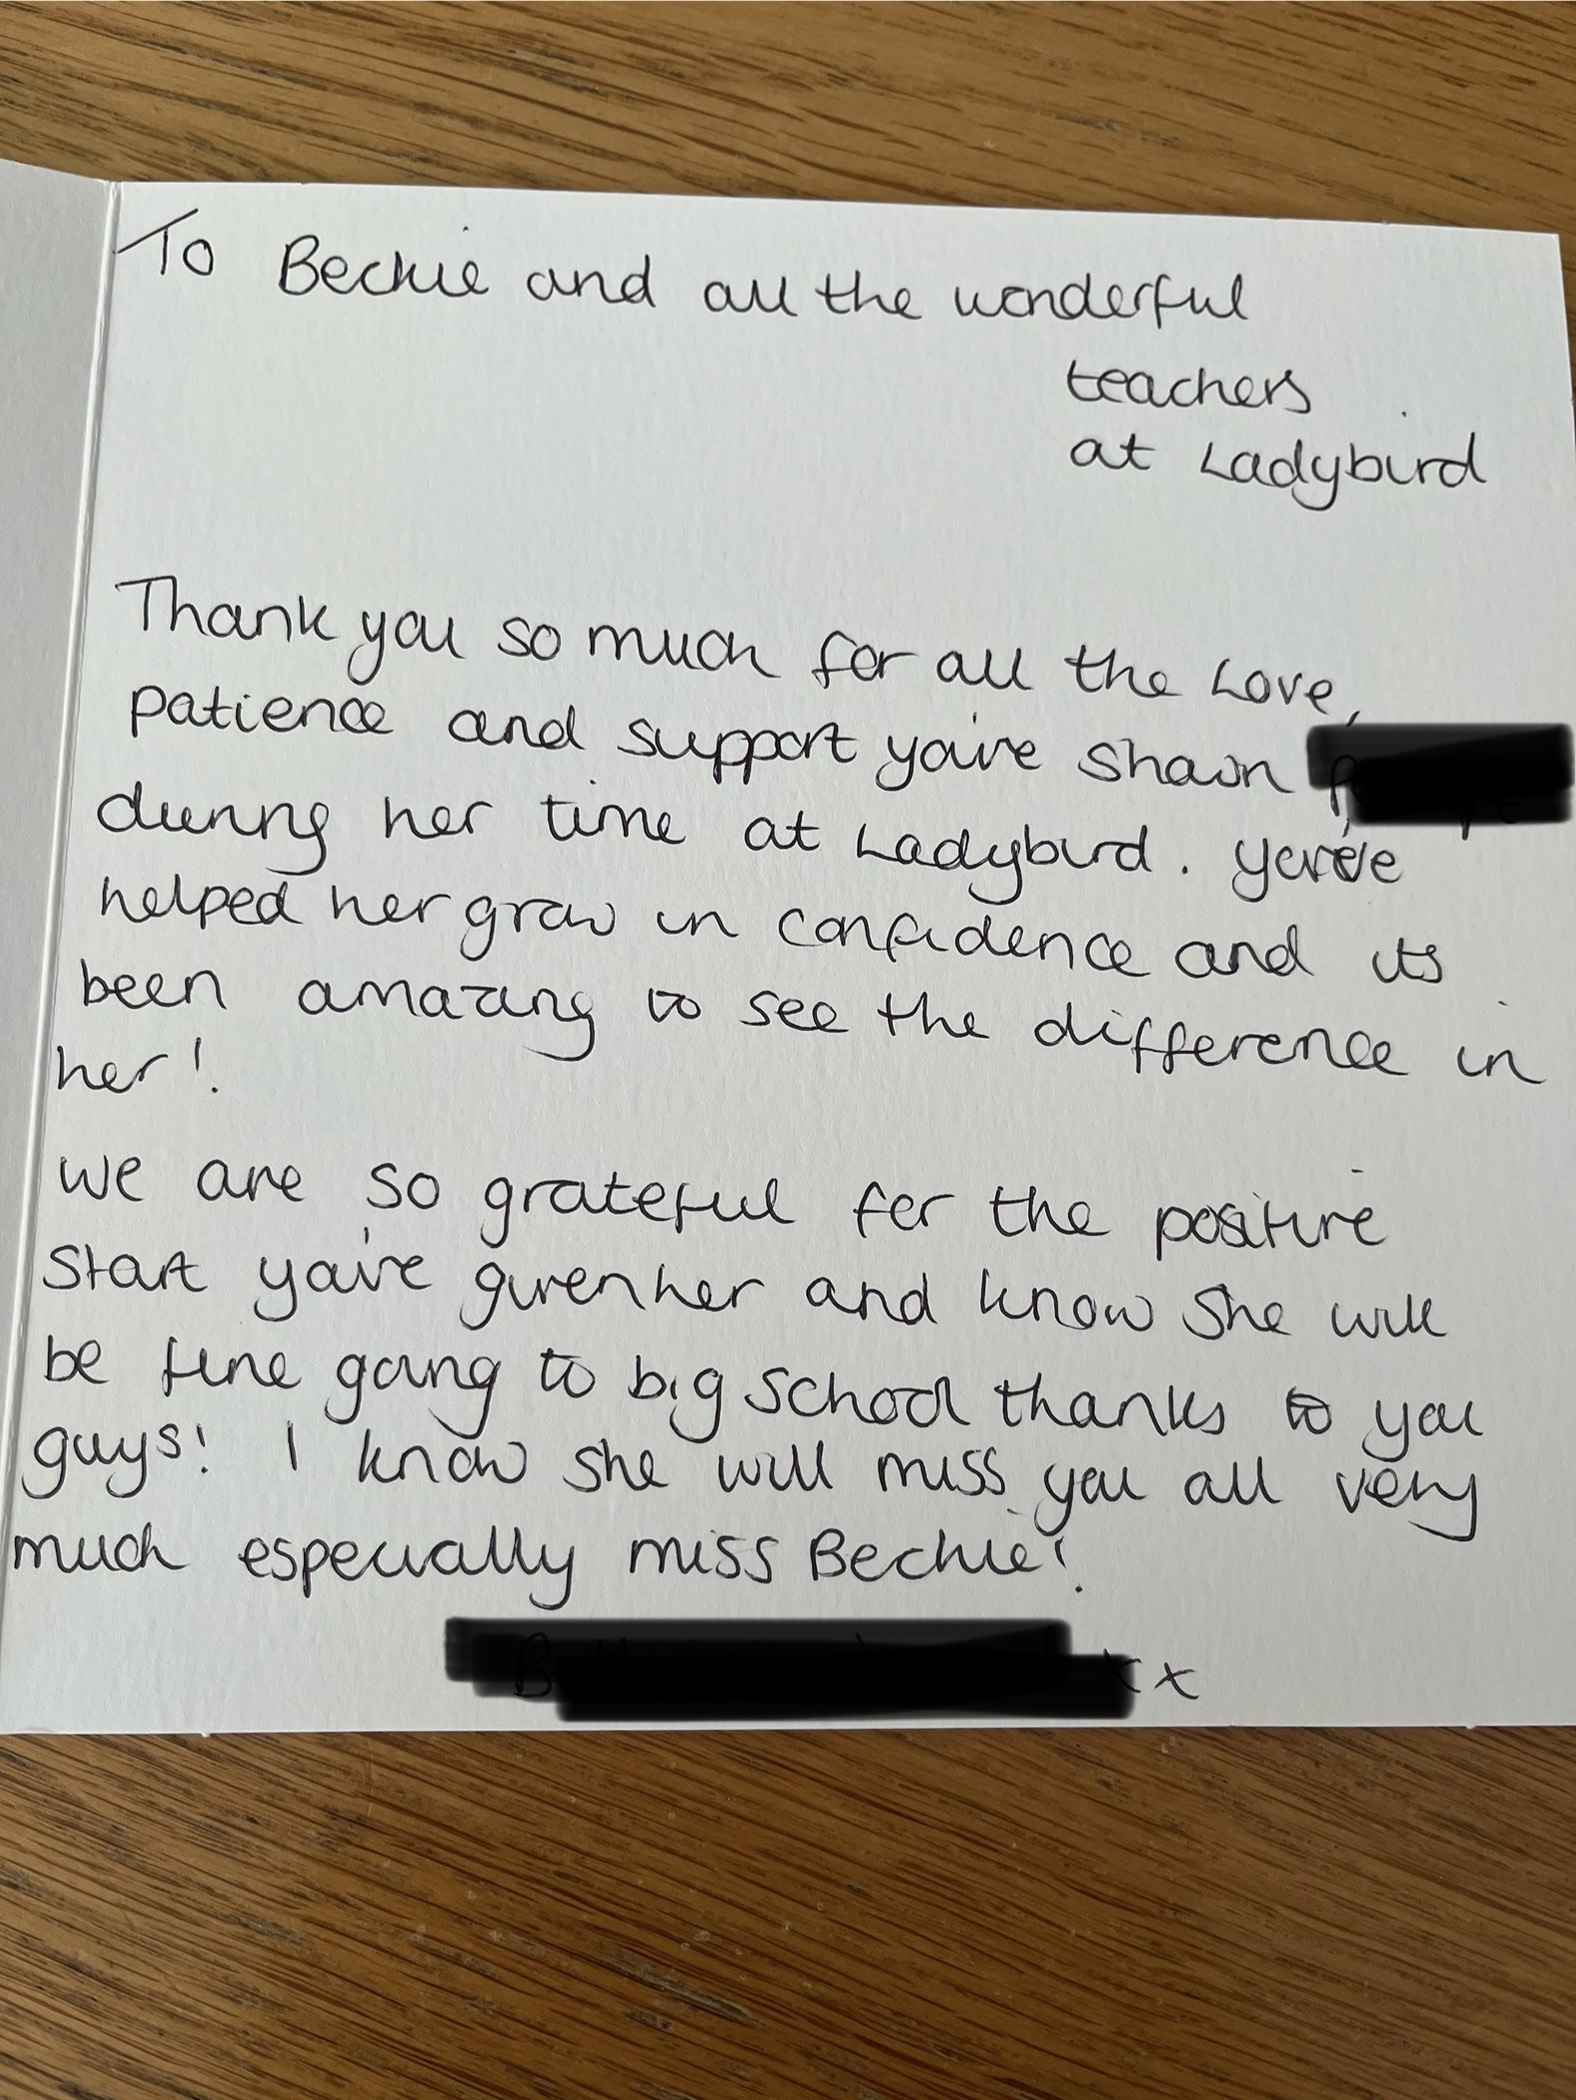 To Beckie and all the wonderful
teachers
at Ladybird
Thank you so much for all the love,
patience and support you've shown
during her time at Ladybird. You've
helped her grow in confidence and its
been amazing to see the difference in
her!
We are so grateful for the positive
start you've given her and know she will
be fine going to big school thanks to you
guys! I know she will miss you all very
much especially miss Beckie!
xx